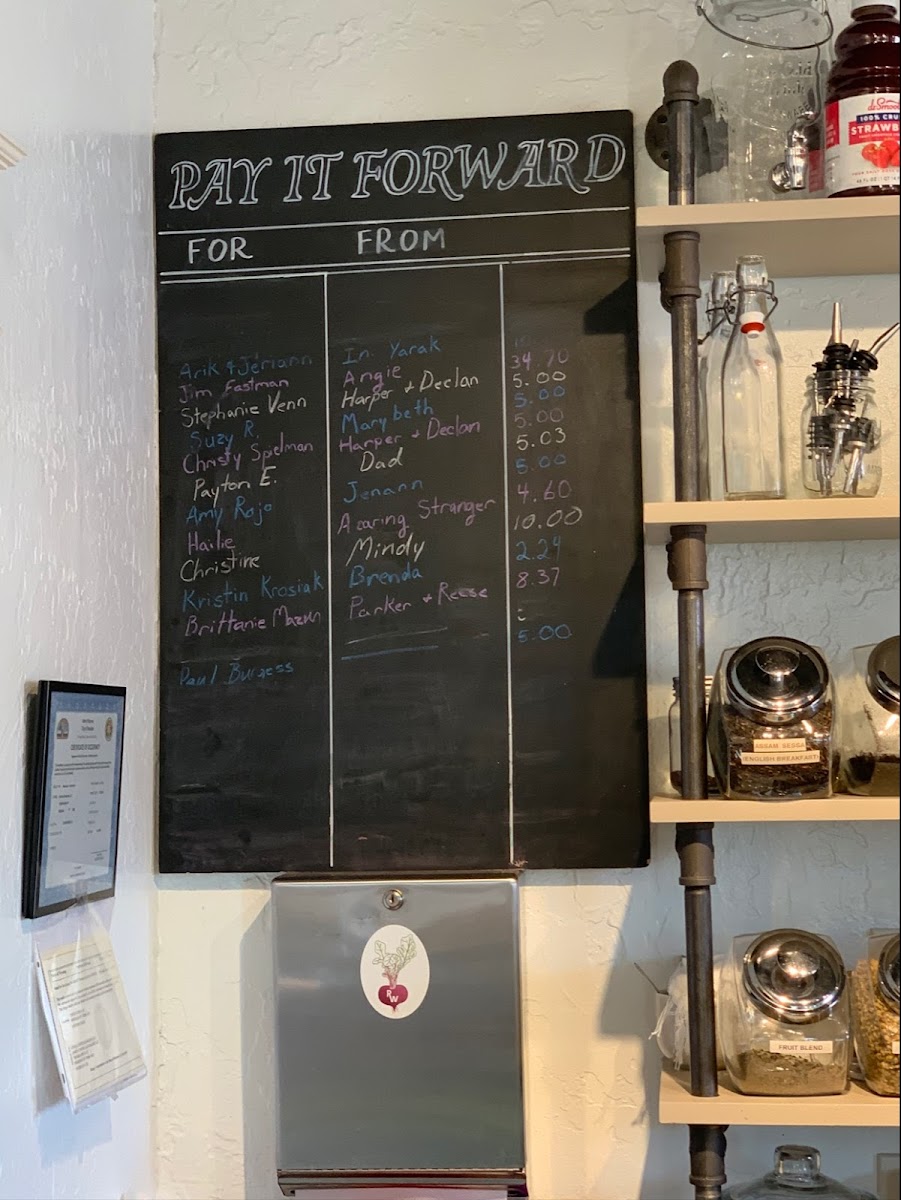 PAY IT FORWARD
FOR FROM
Arik & Jeriann In Yarak
Jim Eastman Angie 34.70
Stephanie Venn Harper + Declan 5.00
Suzy R. Marybeth 5.00
Christy Spelman Harper + Declan 5.00
Payton E. Dad 5.03
Amy Rojo Jenann 5.00
Hailie A caring Stranger 4.60
Christine Mindy 10.00
Kristin Krosiak Brenda 2.24
Brittanie Parker + Reese 8.37
Paul Burgess 5.00
RW
100% CRU
STRAWB
ASSAM SESSA
(ENGLISH BREAKFAST)
FRUIT BLEND